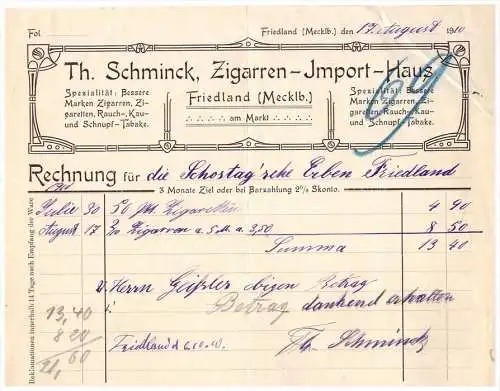 Fol.
Friedland (Mecklb.) den 17. August 1910
Th. Schminck, Zigarren-Jmport-Haus
Spezialität: Bessere
Marken Zigarren, Zi-
garetten, Rauch-, Kau-
und Schnupf-Tabake.
Friedland (Mecklb.)
am Markt
Spezialität: Bessere
Marken Zigarren, Zi-
garetten, Rauch-, Kau-
und Schnupf-Tabake.
Rechnung für die Schostag'sche Erben Friedland
3 Monate Ziel oder bei Barzahlung 2% Skonto.
Reklamationen innerhalb 14 Tage nach Empfang der Ware
Julie 30 50 Zigaretten 4 90
August 17 Zigarren a 8 50
Summa 13 40
v. Herrn Geißler obigen Betrag
Betrag dankend erhalten
Friedland d. 6.10.10. Th. Schminck
13,40
8 20
21,60